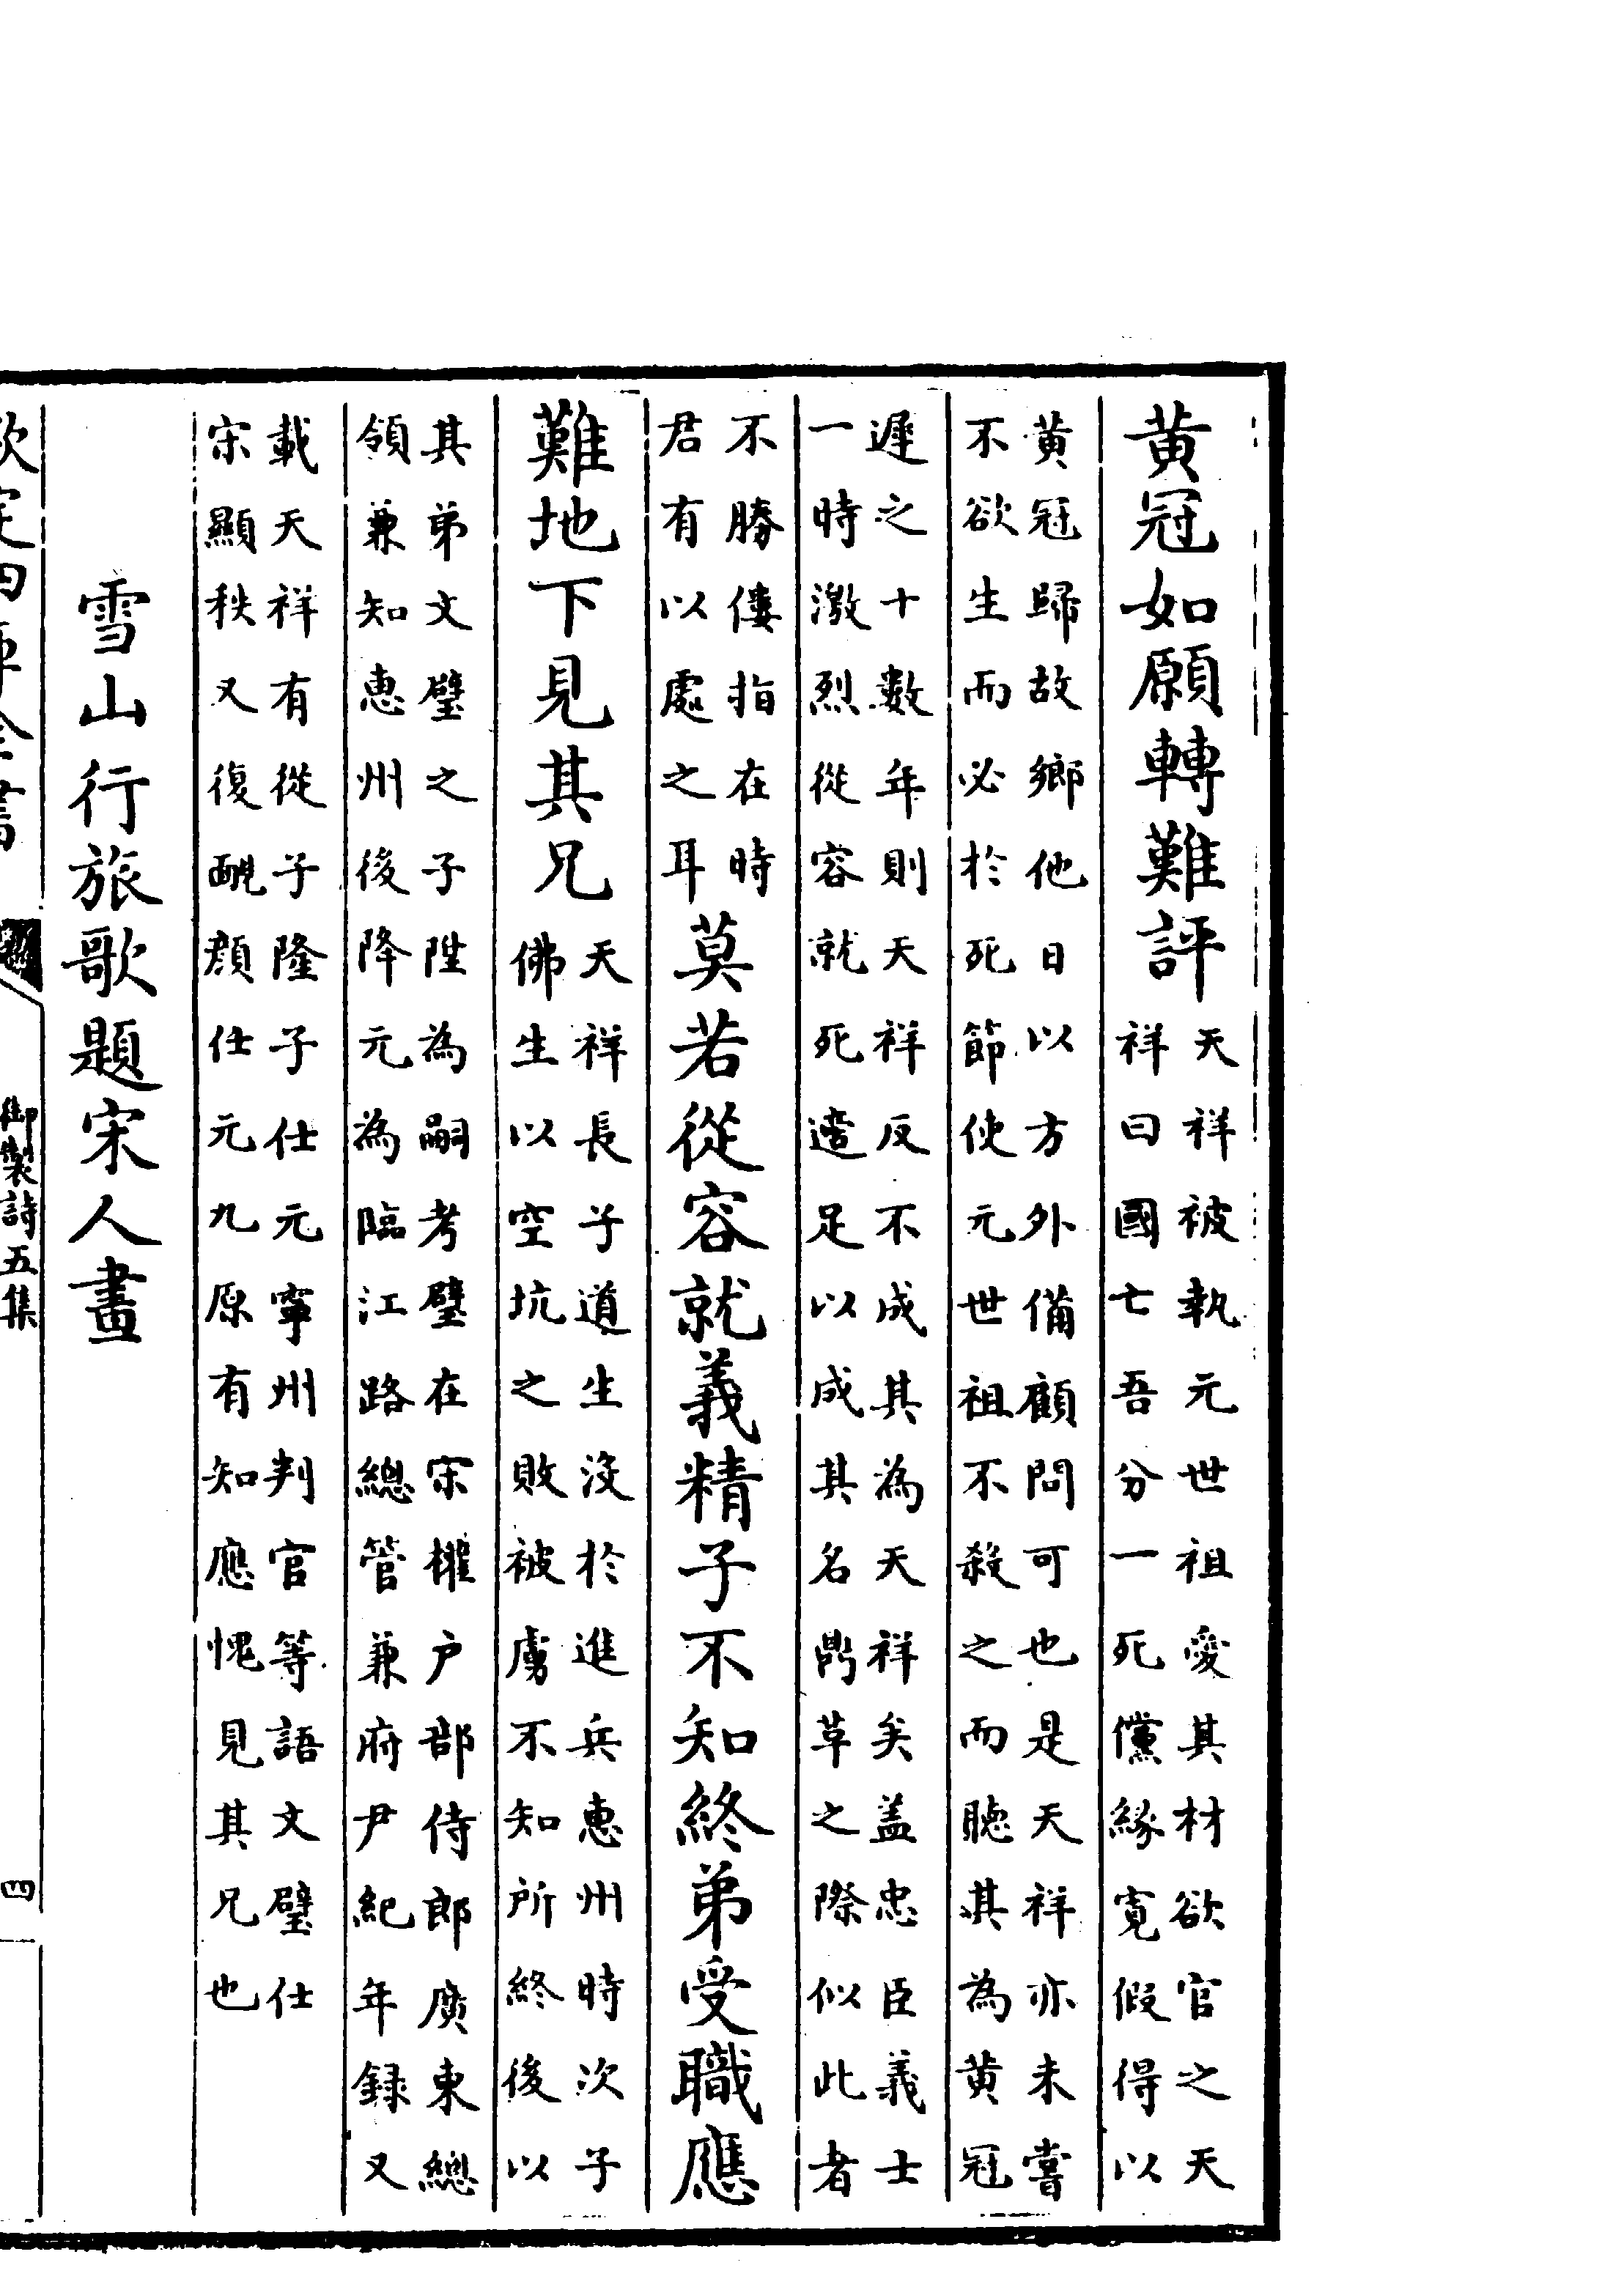 黄冠如願轉難評天祥被執元世祖愛其材欲官之天
祥曰國亡吾分一死儻緣寛假得以
黄冠歸故鄉他日以方外備顧問可也是天祥亦未嘗
不欲生而必於死節使元世祖不殺之而聽其為黄冠
遲之十數年則天祥反不成其為天祥矣盖忠臣義士
一時激烈從容就死適足以成其名鼎革之際似此者
不勝僂指在時
君有以處之耳莫若從容就義精子不知終弟受職應
難地下見其兄天祥長子道生沒於進兵惠州時次子
佛生以空坑之敗被虜不知所終後以
其弟文璧之子陞為嗣考璧在宋權户部侍郎廣東總
領兼知惠州後降元為臨江路總管兼府尹紀年録又
載天祥有從子隆子仕元寧州判官等語文璧仕
宋顯秩又復靦顔仕元九原有知應愧見其兄也
雪山行旅歌題宋人畫
欽定四庫全書
御製詩五集
四